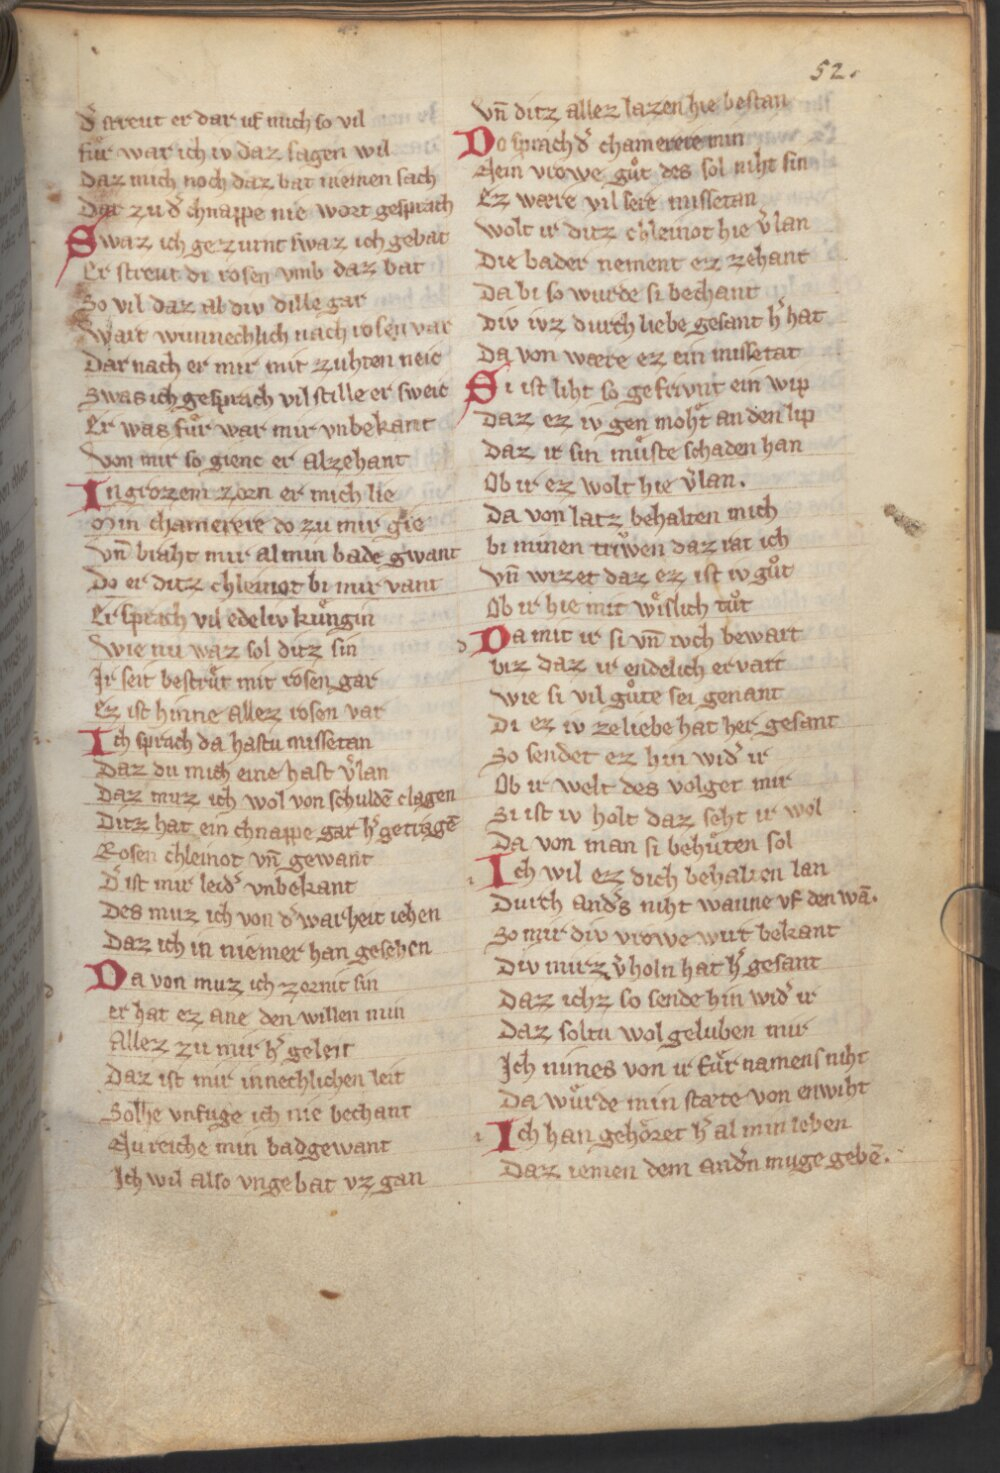 52.
D̾ streut er dar uf mich so vil
fuͦr war ich iv daz sagen wil
Daz mich noch daz bat niemen sach
Dar zu d̾ chnappe nie wort gesprach
Swaz ich gezurnt swaz ich gebat
Er streut di rosen vmb daz bat
So vil daz al div dille gar
Wart wunnechlich nach rosen var
Dar nach er mir mit zuhten neic
Swas ich gesprach vil stille er sweic
Er was fuͦr war mir vnbekant
Von mir so gienc er alzehant
In grozem zorn er mich lie
Min chamerere do zu mir gie
Vn̄ braht mir al min bade gwant
Do er ditz chleinot bi mir vant
Er sprach vil edeliv kuͦngin
Wie nu waz sol ditz sin
Ir seit bestruͦt mit rosen gar
Ez ist hinne allez rosen var
Ich sprach da hastu missetan
Daz du mich eine hast v̾lan
Daz muz ich wol von schuldē clagen
Ditz hat ein chnappe gar h̾ getragē
Rosen chleinot vn̄ gewant
D̾ ist mir leid̾ vnbekant
Des muz ich von d̾ warheit iehen
Daz ich in niemer han gesehen
Da von muz ich zornic sin
er hat ez ane den willen min
Allez zu mir h̾ geleit
Daz ist mir innechlichen leit
Solhe vnfuge ich nie bechant
Nu reiche min badgewant
Ich wil also vngebat vz gan
Vn̄ ditz allez lazen hie bestan
Do sprach d̾ chamerere min
Nein vrowe guͦt des sol niht sin
Ez wære vil sere missetan
Wolt ir ditz chleinot hie v̾lan
Die bader nement ez zehant
Da bi so wurde si bechant
Div ivz durch liebe gesant h̾ hat
Da von wære ez ein missetat
Si ist liht so gefrivnt ein wip
Daz ez iv gen moht an den lip
Daz ir sin muͦste schaden han
Ob ir ez wolt hie v̾lan.
Da von latz behalten mich
bi minen triͮwen daz rat ich
Vn̄ wizet daz ez ist iv guͦt
Ob ir hie mit wislich tuͦt
Da mit ir si vn̄ ivch bewart
biz daz ir endelich ervart
Wie si vil guͦte sei genant
Di ez iv ze liebe hat her gesant
So sendet ez hin wid̾ ir
Ob ir welt des volget mir
Si ist iv holt daz seht ir wol
Da von man si behuͦten sol
Ich wil ez dich behalten lan
Durch and̾s niht wanne vf den wā.
So mir div vrowe wirt bekant
Div mirz v̾holn hat h̾ gesant
Daz ichz so sende hin wid̾ ir
Daz soltu wol geluben mir
Ich nimes von ir fuͦr namens niht
Da wuͦrde min stæte von enwiht
Ich han gehoͤret h̾ al min leben
Daz iemen dem and̾n muge gebē.